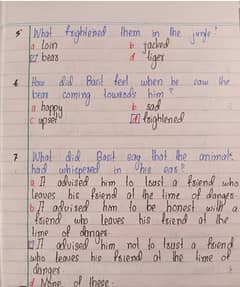 5 What frightened them in the jungle?
a loin b jacked
c bear d tiger
6 How did Basit feel when he saw the
bear coming towards him?
a happy b sad
c upset d frightened
7 What did Basit say that the animal
had whispered in his ear?
a It advised him to trust a friend who
leaves his friend at the time of danger
b It advised him to be honest with a
friend who leaves his friend at the
time of danger.
c It advised him not to trust a friend
who leaves his friend at the time of
danger
d None of these.